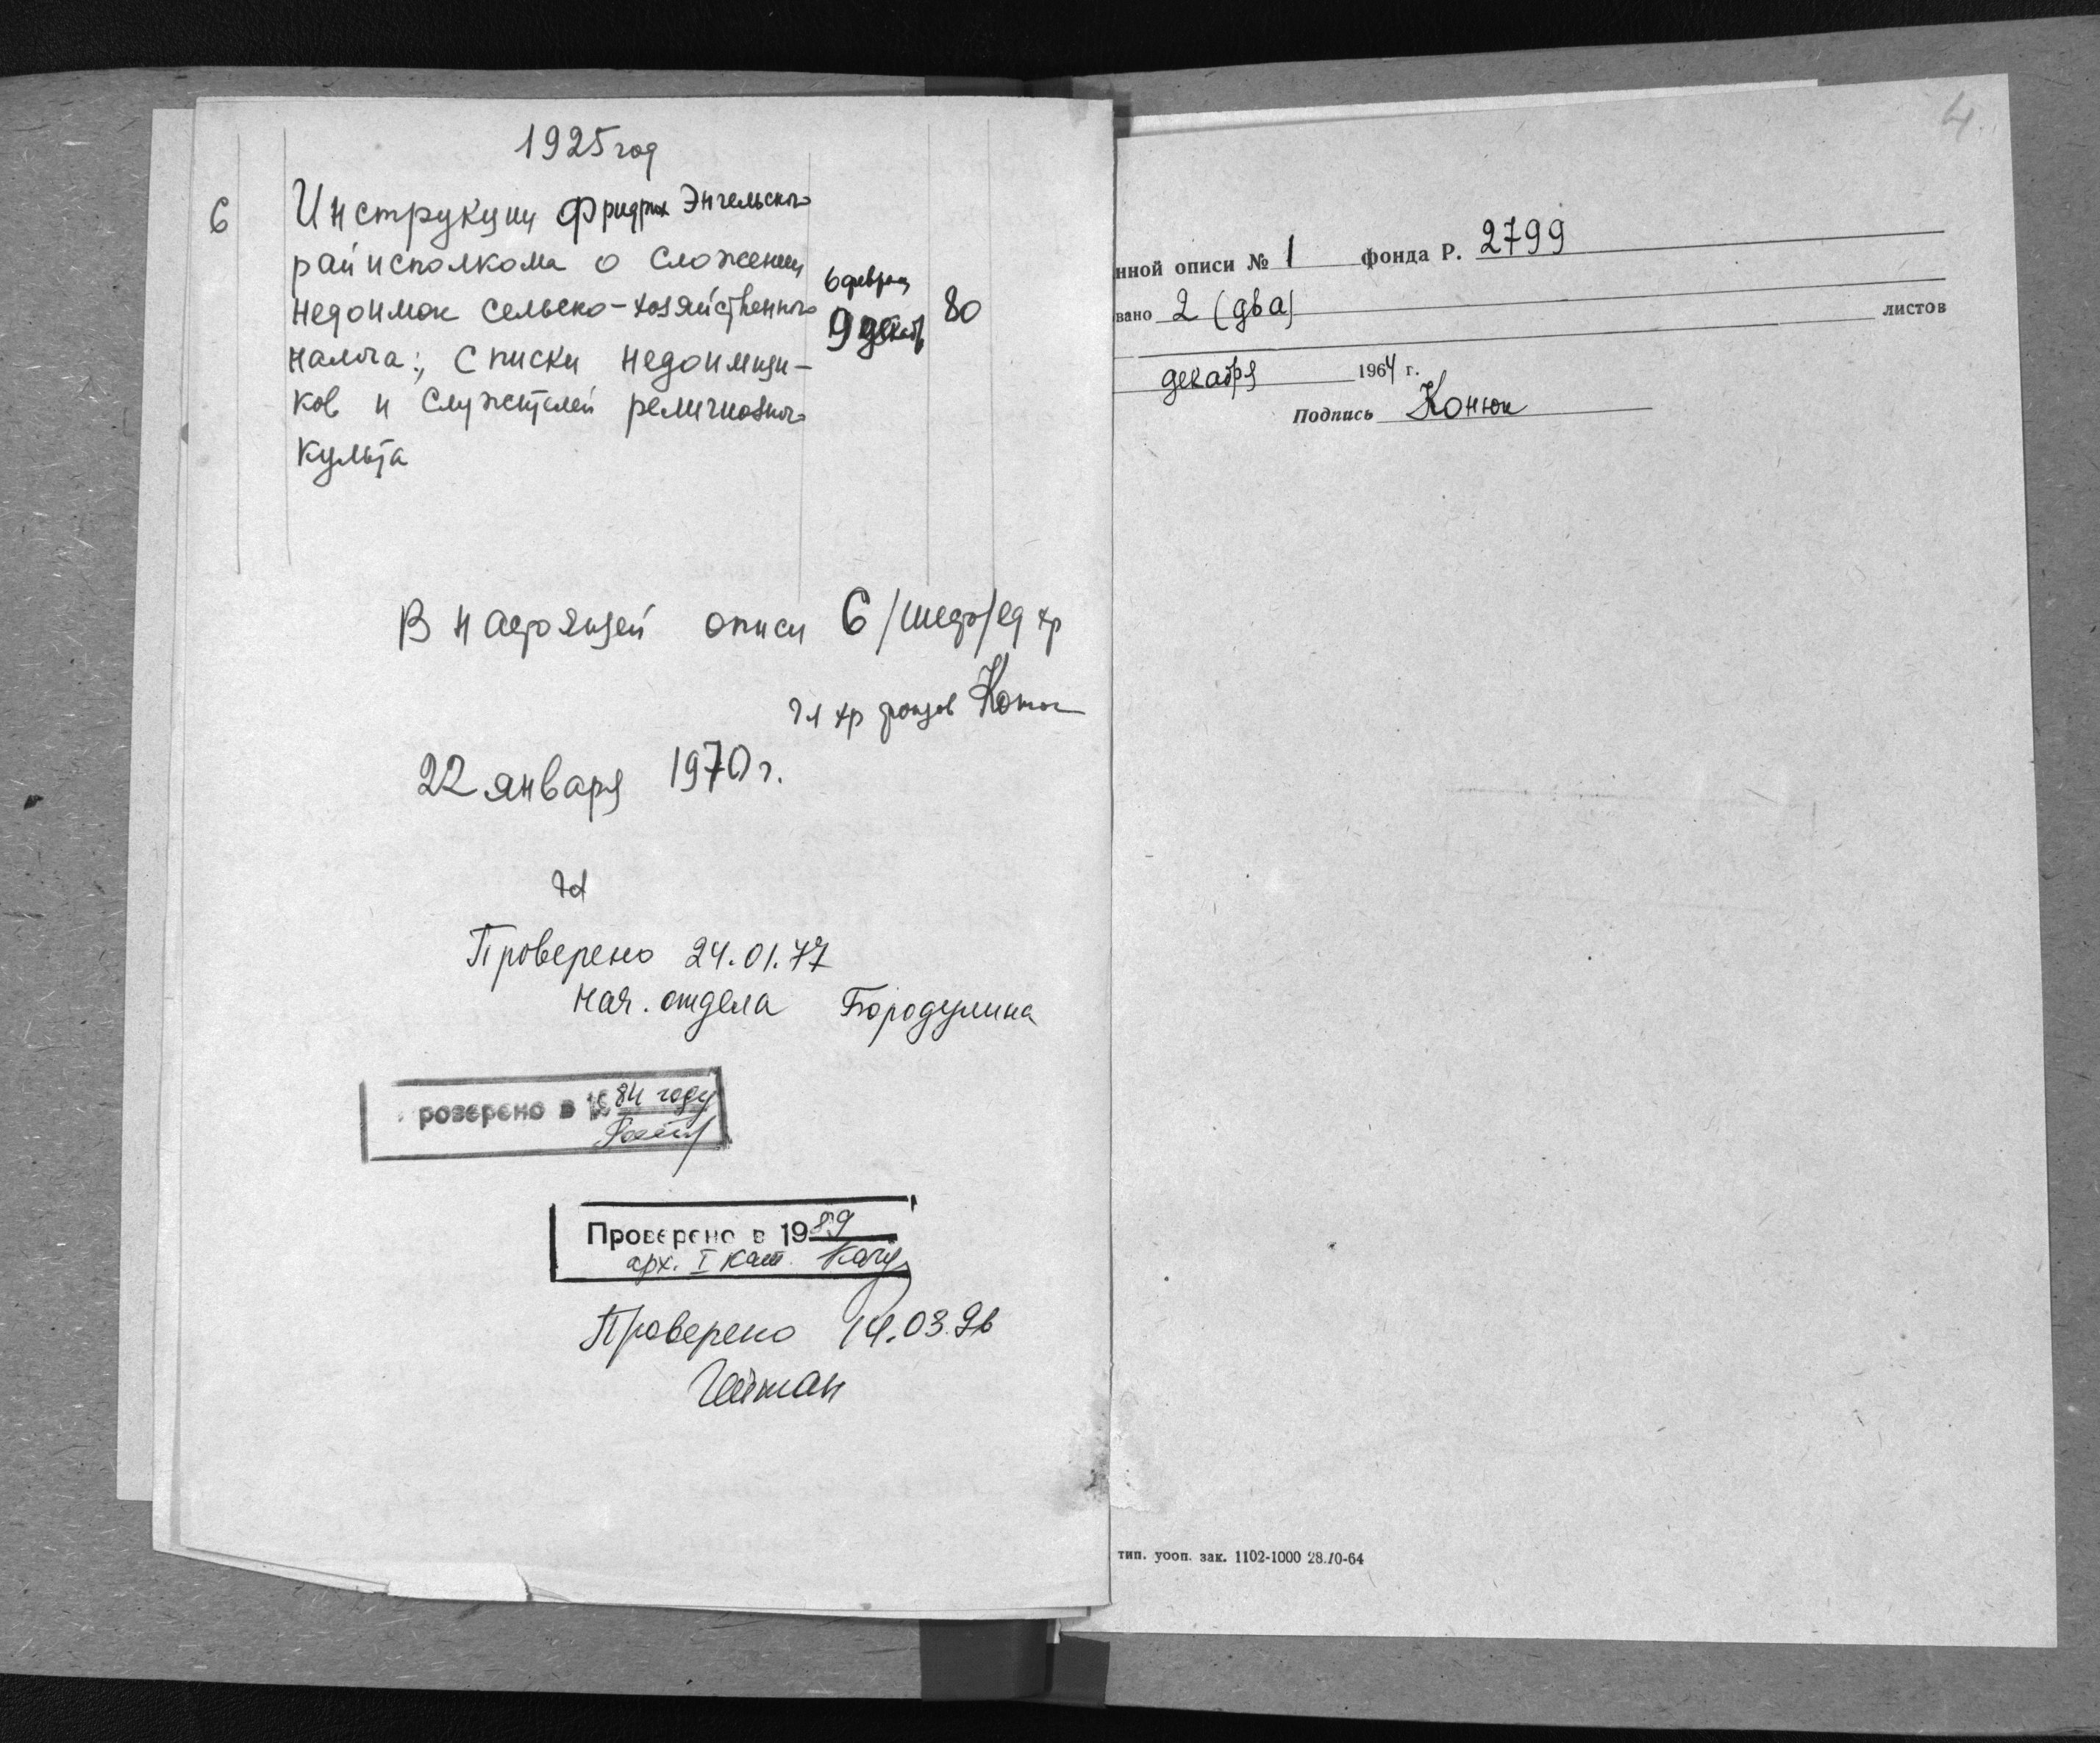 1925 год
6 Инструкции Фридрих Энгельского
райисполкома о сложении
недоимок сельско-хозяйственного
налога; списки недоимщи-
ков и служителей религиозного
культа
6 февраля
9 декабр
80
В настоящей описи 6 /шесть/ ед хр
гл хр фондов Конюк
22 января 1970 г.
гл
Проверено 24.01.77
нач. отдела Бородулина
роверено в 1984 году
Проверено в 1989
арх. I кат.
Проверено 14.03.96
4
нной описи № 1 фонда Р. 2799
вано 2 (два) листов
декабря 1964 г.
Подпись Конюк
тип. уооп. зак. 1102-1000 28.10-64